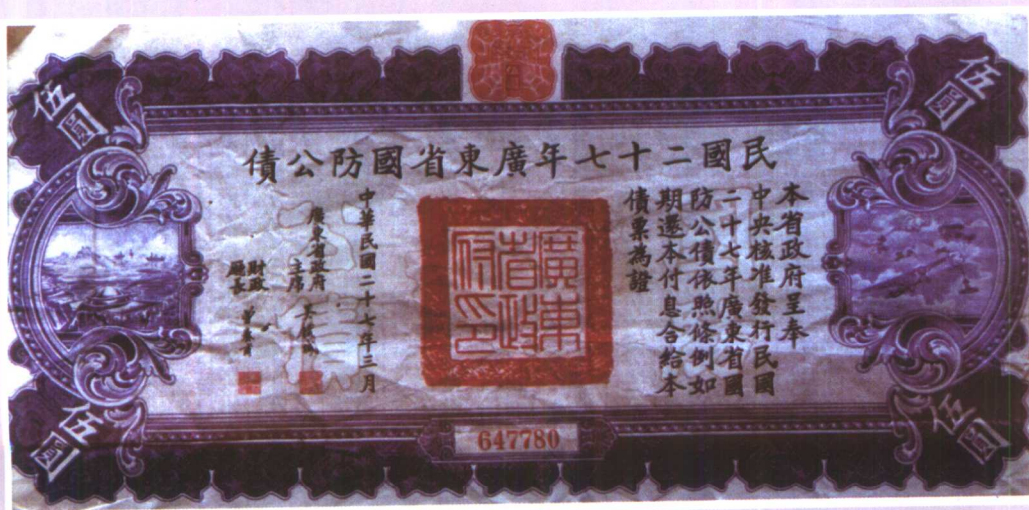 伍圓
伍圓
民國二十七年廣東省國防公債
本省政府呈奉
中央核准發行民國
二十七年廣東省國
防公債依照條例如
期還本付息合給本
債票為證
廣東
省政
府印
中華民國二十七年三月
廣東省政府
主席 吳鐵城
財政
廳長 曾養甫
伍圓
伍圓
647780